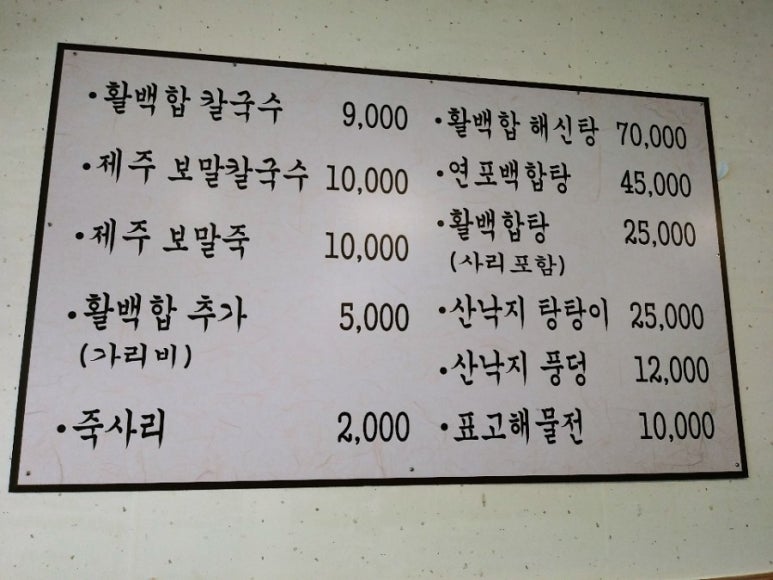 •활백합 칼국수 9,000
•제주 보말칼국수 10,000
•제주 보말죽 10,000
•활백합 추가 5,000
(가리비)
•죽사리 2,000
•활백합 해신탕 70,000
•연포백합탕 45,000
•활백합탕 25,000
(사리포함)
•산낙지 탕탕이 25,000
•산낙지 풍덩 12,000
•표고해물전 10,000